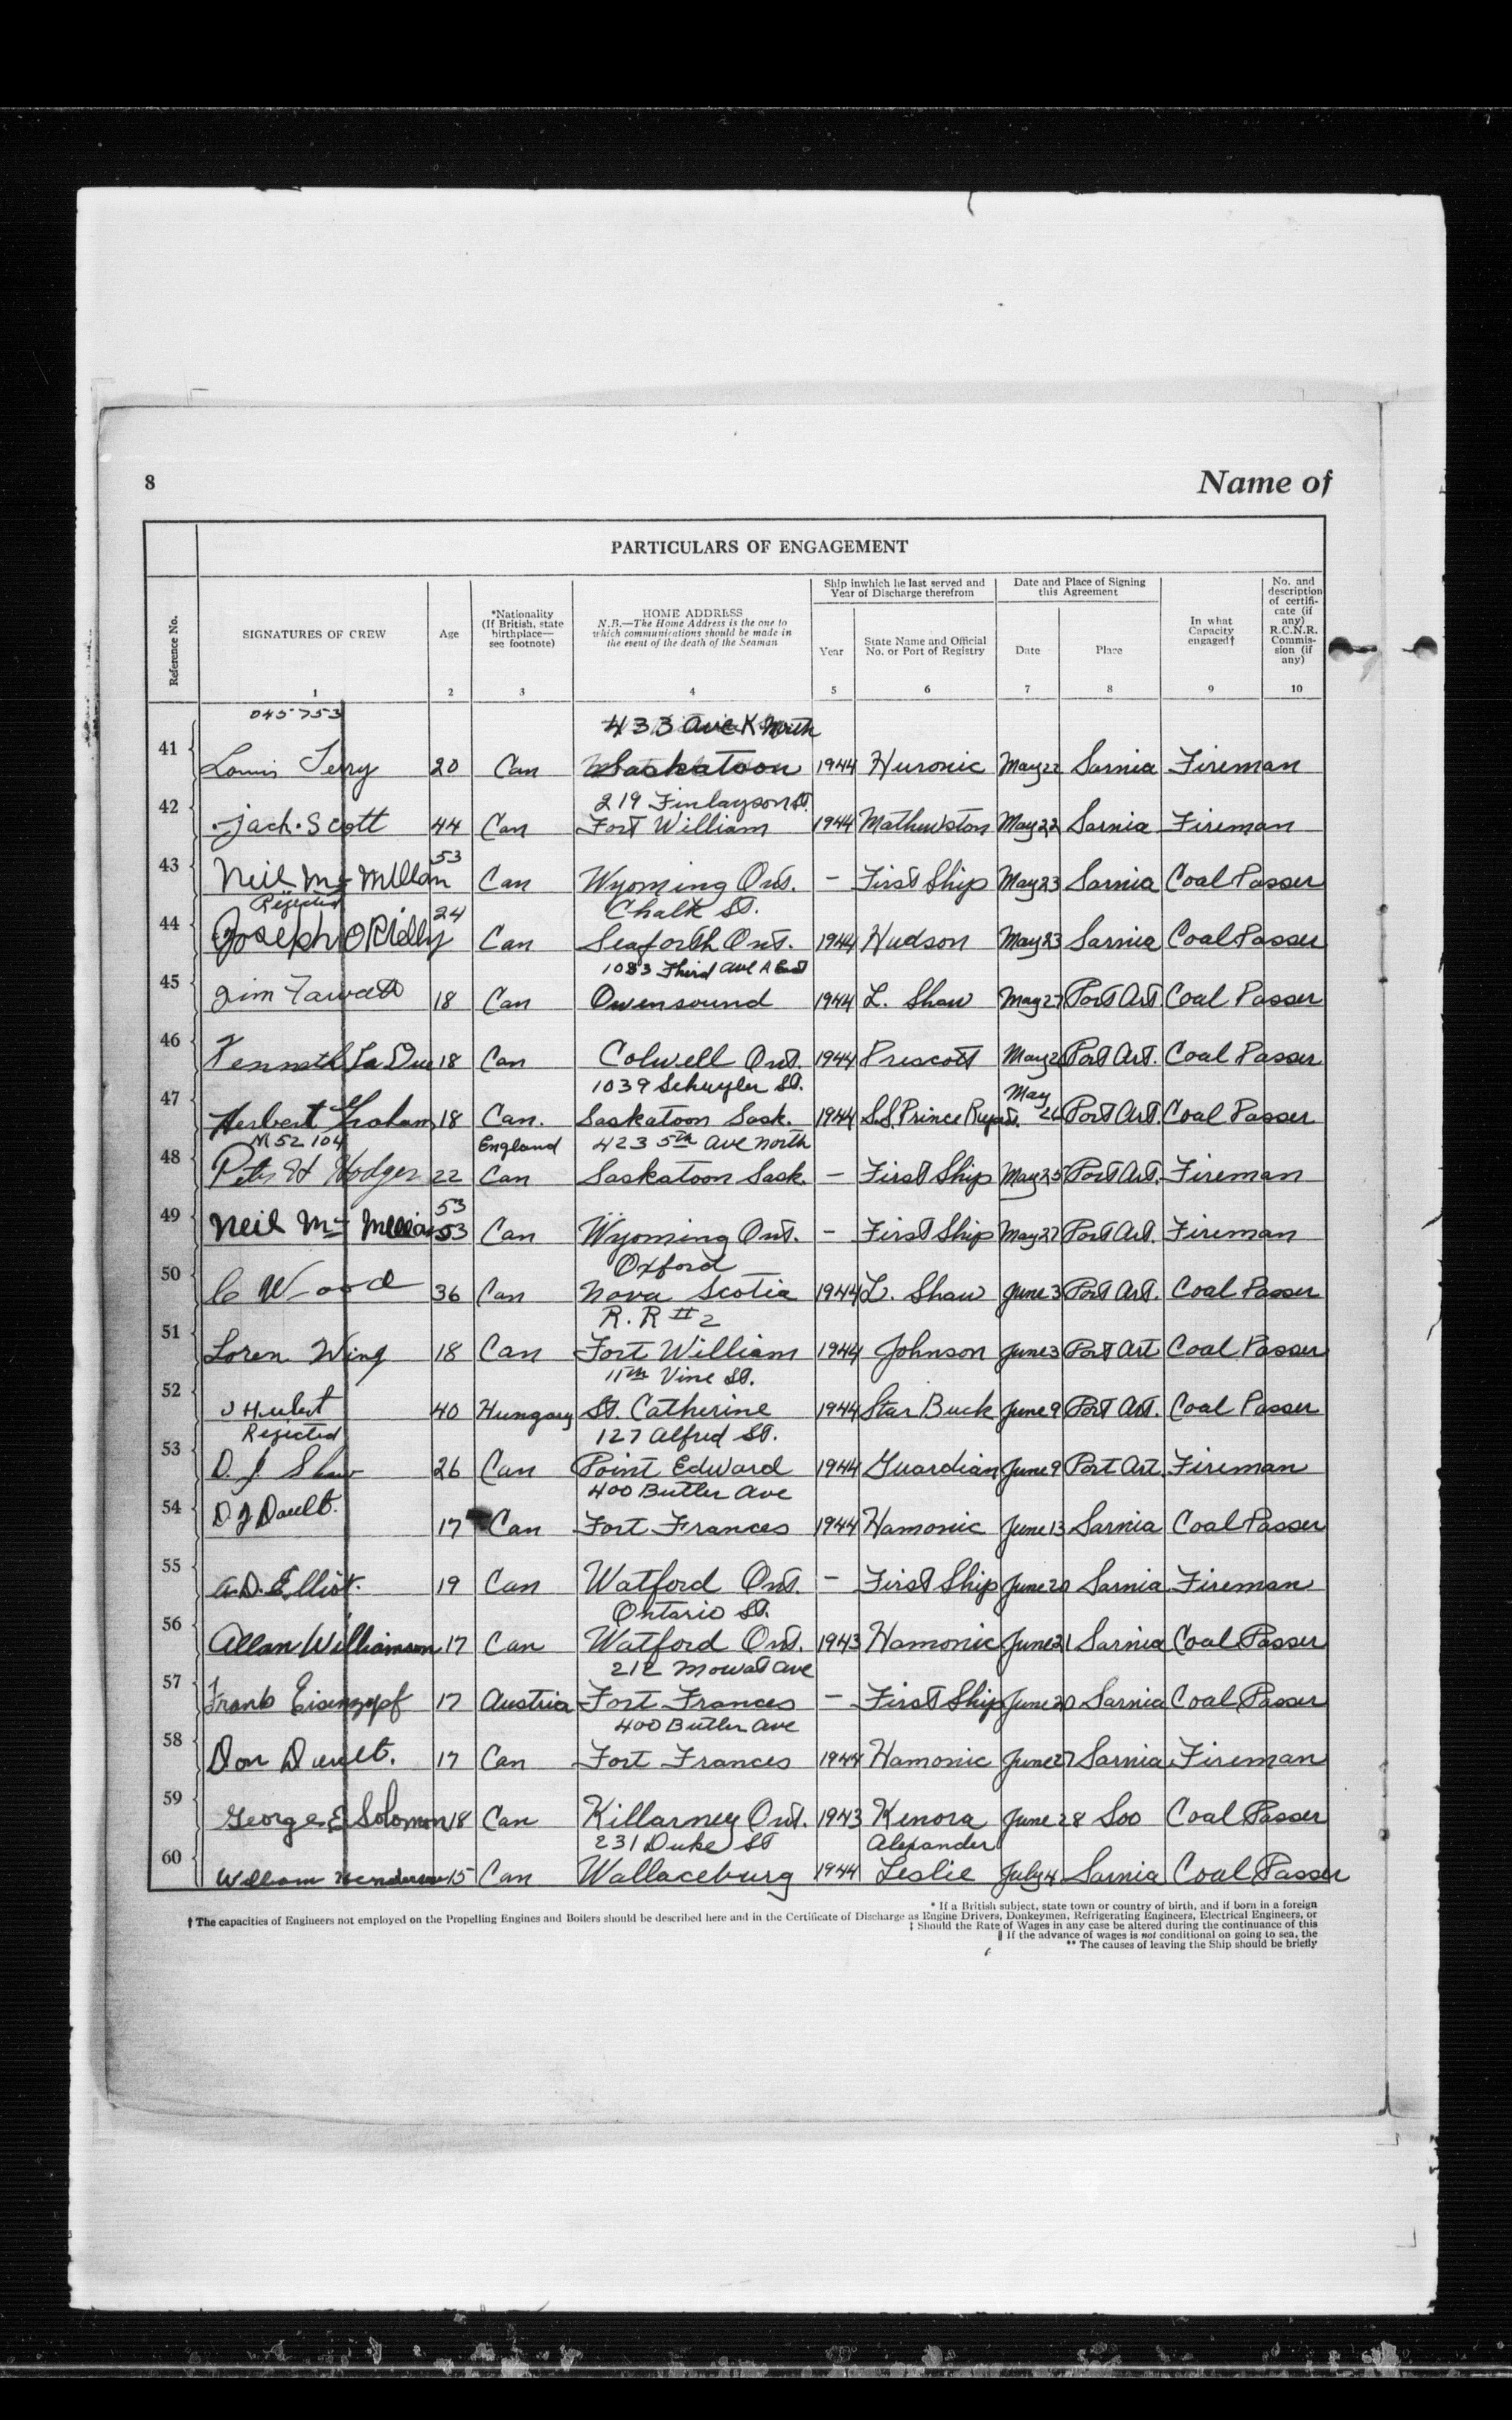 8
Name of
PARTICULARS OF ENGAGEMENT
Reference No.
SIGNATURES OF CREW
Age
*Nationality
(If British, state
birthplace—
see footnote)
HOME ADDRESS
N.B.—The Home Address is the one to
which communications should be made in
the event of the death of the Seaman
Ship in which he last served and
Year of Discharge therefrom
Year
State Name and Official
No. or Port of Registry
Date and Place of Signing
this Agreement
Date
Place
In what
Capacity
engaged†
No. and
description
of certifi-
cate (if
any)
R.C.N.R.
Commis-
sion (if
any)
1 2 3 4 5 6 7 8 9 10
045753 433 Ave K North
41 Louis Terry 20 Can Saskatoon 1944 Huronic May 22 Sarnia Fireman
219 Finlayson St.
42 Jack Scott 44 Can Fort William 1944 Mathewston May 22 Sarnia Fireman
43 Neil Mc Millan 53 Can Wyoming Ont. – First Ship May 23 Sarnia Coal Passer
Rejected Chalk St.
44 Joseph O Rielly 24 Can Seaforth Ont. 1944 Hudson May 23 Sarnia Coal Passer
1083 Third Ave A East
45 Jim 18 Can Owensound 1944 L. Shaw May 27 Port Art Coal Passer
46 Kenneth La Due 18 Can Colwell Ont. 1944 Prescott May Port Art. Coal Passer
1039 Schuyler St. May
47 Herbert Graham 18 Can. Saskatoon Sask. 1944 S.S. Prince Rupert. 26 Port Art. Coal Passer
M52104 England 423 5th Ave North
48 Peter H Hodger 22 Can Saskatoon Sask. – First Ship May 25 Port Art. Fireman
53
49 Neil Mc Millan 53 Can Wyoming Ont. – First Ship May 27 Port Art. Fireman
Oxford
50 C Wood 36 Can Nova Scotia 1944 L. Shaw June 3 Port Art. Coal Passer
R.R #2
51 Loren Wing 18 Can Fort William 1944 Johnson June 3 Port Art Coal Passer
11th Vine St.
52 J Hubert 40 Hungary St. Catherine 1944 Star Buck June 9 Port Art. Coal Passer
Rejected 127 Alfred St.
53 D. J Shaw 26 Can Point Edward 1944 Guardian June 9 Port Art. Fireman
400 Butler Ave
54 D J Dault. 17 Can Fort Frances 1944 Hamonic June 13 Sarnia Coal Passer
55 A.D. Elliot. 19 Can Watford Ont. – First Ship June 20 Sarnia Fireman
Ontario St.
56 Allan Williamson 17 Can Watford Ont. 1943 Hamonic June 21 Sarnia Coal Passer
212 Mowat Ave
57 Frank Eisenzopf 17 Austria Fort Frances – First Ship June 20 Sarnia Coal Passer
400 Butler Ave
58 Don Dault. 17 Can Fort Frances 1944 Hamonic June 27 Sarnia Fireman
59 George E Solomon 18 Can Killarney Ont. 1943 Kenora June 28 Soo Coal Passer
231 Duke St Alexander
60 William Henderson 15 Can Wallaceburg 1944 Leslie July 4 Sarnia Coal Passer
* If a British subject, state town or country of birth, and if born in a foreign
† The capacities of Engineers not employed on the Propelling Engines and Boilers should be described here and in the Certificate of Discharge as Engine Drivers, Donkeymen, Refrigerating Engineers, Electrical Engineers, or
‡ Should the Rate of Wages in any case be altered during the continuance of this
‖ If the advance of wages is not conditional on going to sea, the
** The causes of leaving the Ship should be briefly